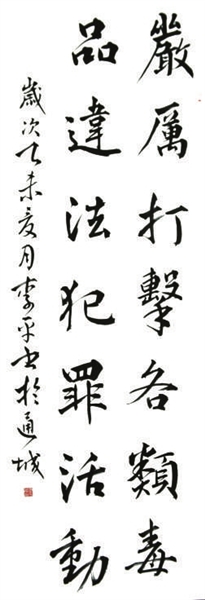 嚴厲打擊各類毒
品違法犯罪活動
歲次乙未夏月李平书於通城